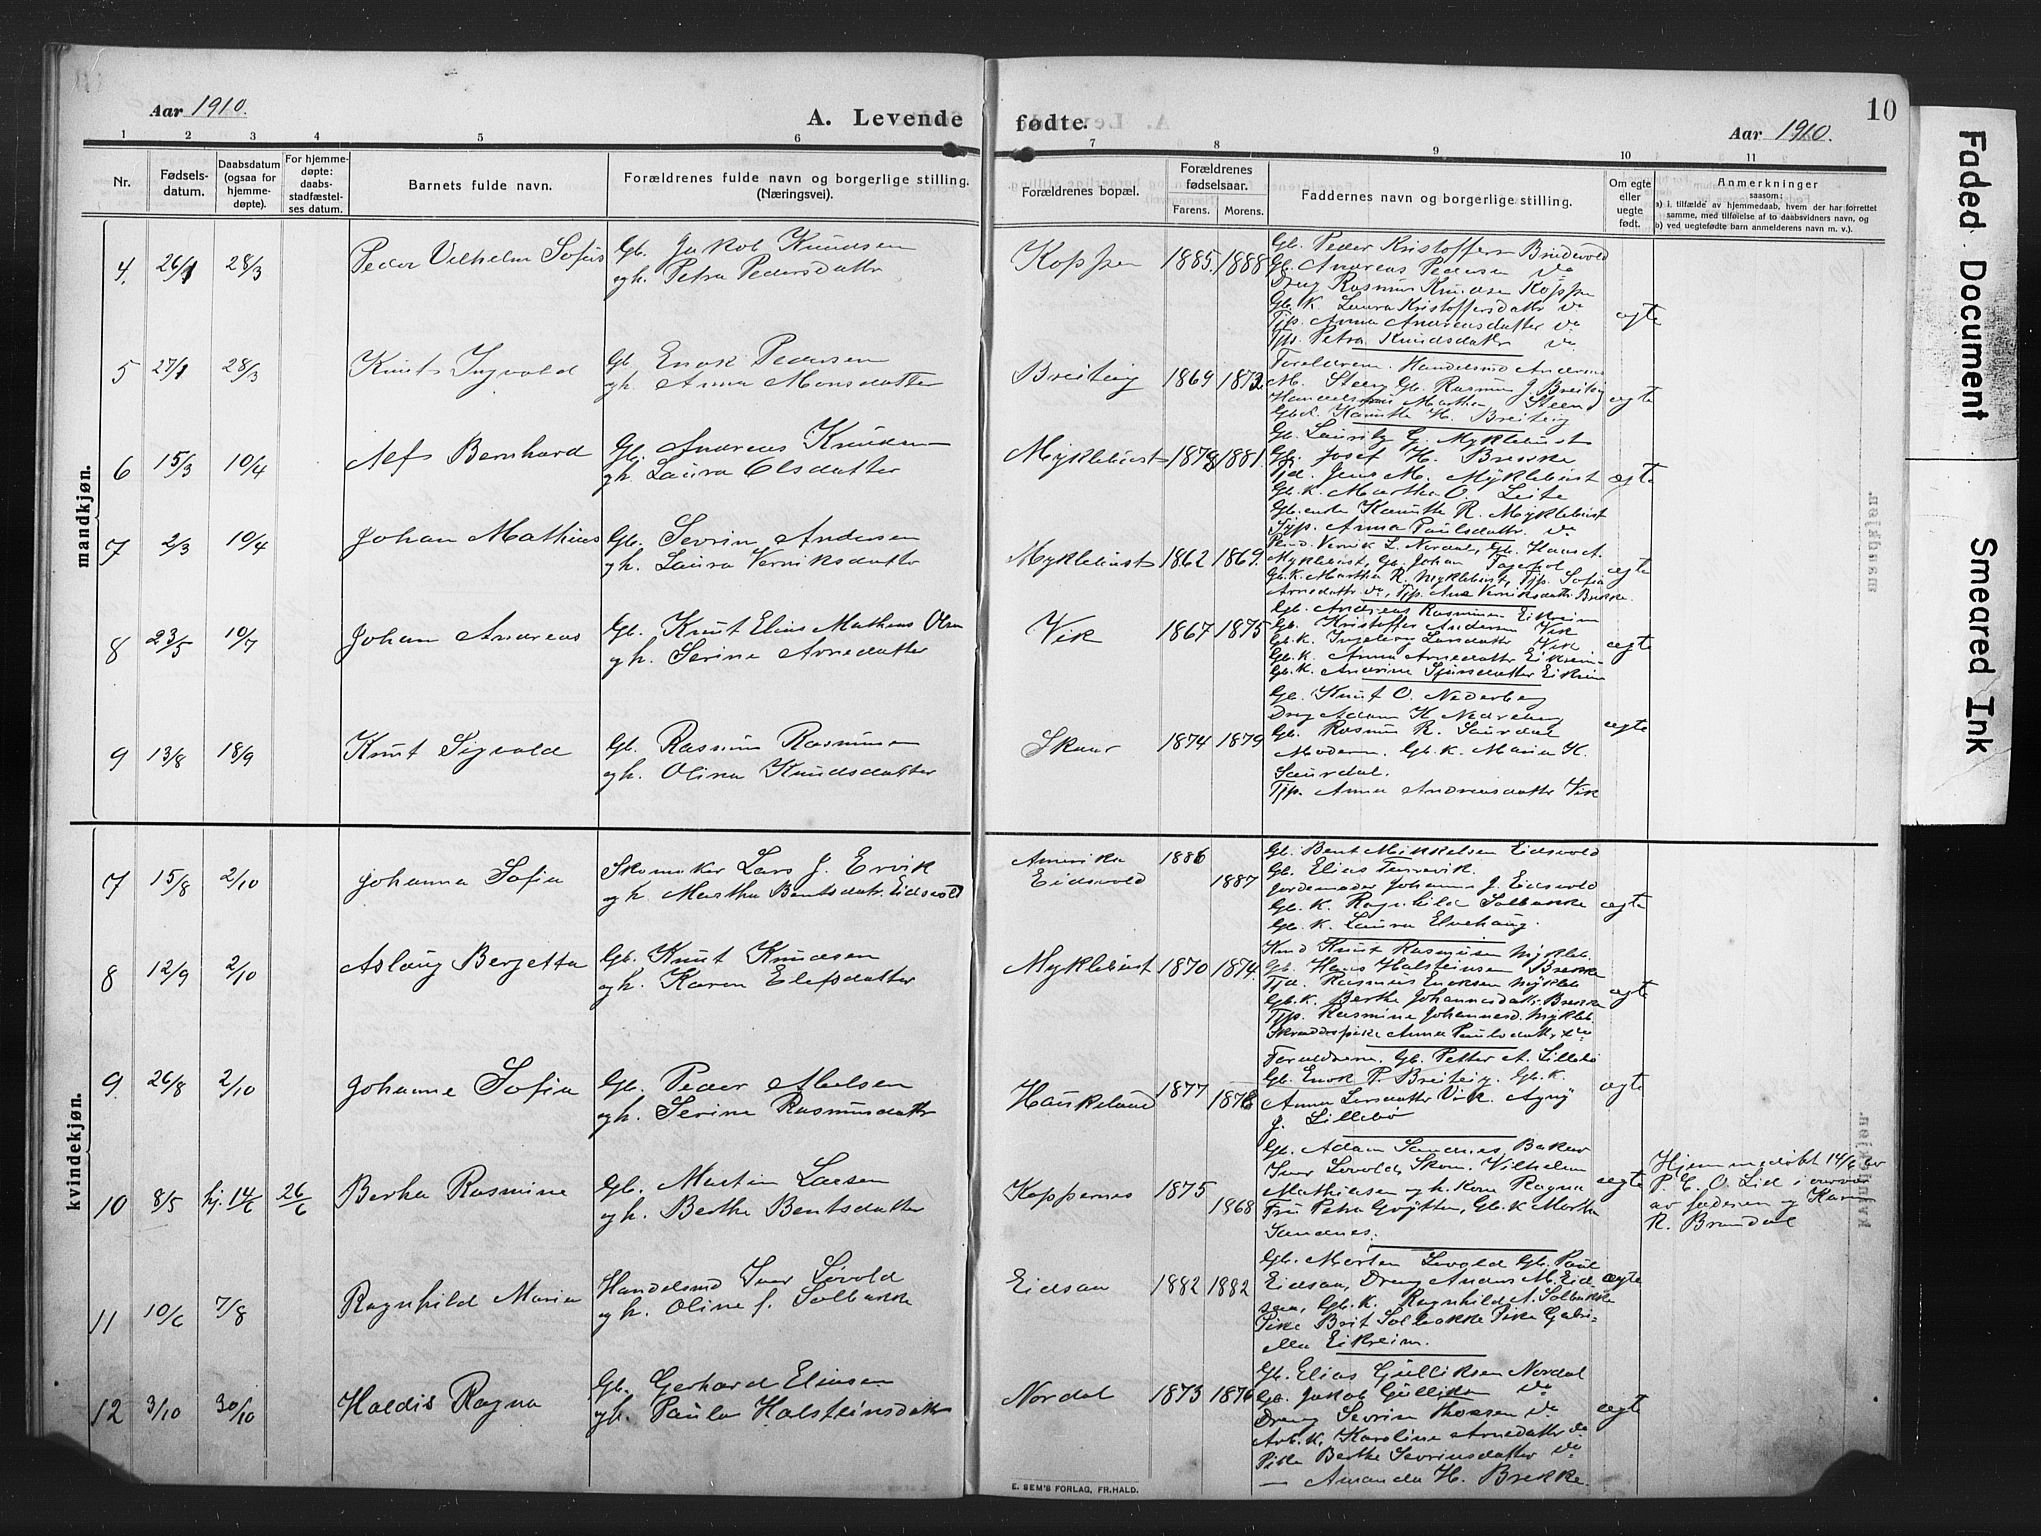 Aar 1910.
A. Levende
fødte.
Aar 1910.
10
1 2 3 4 5 6
7 8 9 10 11
Nr.
Fødsels-
datum.
Daabsdatum
(ogsaa for
hjemme-
døpte).
For hjemme-
døpte:
daabs-
stadfæstel-
ses datum.
Barnets fulde navn.
Forældrenes fulde navn og borgerlige stilling.
(Næringsvei).
Forældrenes bopæl.
Forældrenes
fødselsaar.
Farens. Morens.
Faddernes navn og borgerlige stilling.
Om egte
eller
uegte
født.
Anmerkninger
saasom:
a) i. tilfælde av hjemmedaab, hvem der har forrettet
samme, med tilføielse af to daabsvidners navn, og
b) ved uegtefødte barn anmelderens navn m. v.).
mandkjøn.
4. 26/1 28/3 Peder Vilhelm Sofus
Gb. Jakob Knudsen
og h. Petra Pedersdatter
Koppen 1885. 1888
Gb. Peder Kristoffersen Brudevold
Gb. Andreas Pedersen do
Dreng Rasmus Knudsen Koppen
Gb. K. Laura Kristoffersdattr do
Tjp. Anna Andreasdatter do
Tjp. Petra Knudsdattr do
egte
5 27/1 28/3 Knut Ingvald
Gb. Enok Pedersen
og h. Anna Monsdatter
Breiteig 1869 1872
Foreldrene. Handelsmd Andreas
M. Steen, Gb. Rasmus J. Breiteig
Martha Steen
H. Breiteig
egte
6 15/3 10/4 Alf Bernhard
Gb. Andreas Knudsen
og h. Laura Olsdatter
Myklebust 1879 1881.
Gb. Laurits G. Myklebust
Gb. Josef H. Brekke
Tjd. Jens M. Myklebust
Gb. K. Martha O. Leite
Gb. enke R. Myklebust
Tjp. Anna Paulsdatter do
egte
7 2/3 10/4 Johan Mathias
Gb. Sevrin Andersen
og h. Laura Verniksdatter
Myklebust 1862 1869.
Vernik L. Nordal, Gb. Hans A.
Myklebust, Gb. Johan
Gb. K. Martha R. Myklebust, Tjp. Sofia
Arnedattr do, Tjp. Ane Verniksdattr Brekke.
egte
8 23/5 10/7 Johan Andreas
Gb. Knut Elias Mathias Olsen
og h. Serine Arnedatter
Vik 1867 1875
Gb. Andreas Rasmussen Eikrem
Gb. Kristoffer Andersen Vik
Gb. K. Ingeborg Larsdattr Vik
Gb. K. Anna Arnedattr Eikrem
Gb. K. Andrine Eikrem
egte
9 13/8 18/9 Knut Sigvald
Gb. Rasmus Rasmussen
og h. Olina Knudsdatter
Skaar 1874 1879
Gb. Knut O. Nedreberg
Dreng Adam K. Nedreberg
Gb. Rasmus R. Saurdal
Moderen. Gb. K. Maria K.
Saurdal.
Tjp. Anna Andreasdattr Vik
egte
kvindekjøn.
7 15/8 2/10 Johanna Sofia
Skomaker Lars J. Ervik
og h. Martha Bentsdatr. Eidsvold
Amerika
Eidsvold 1886 1887
Gb. Bent Mikkelsen Eidsvold
Gb. Elias
Jordemoder Johanna J. Eidsvold
Gb. K. Ragnhild Solbakke
Gb. K. Laura Elvehaug.
egte
8 12/9 2/10 Aslaug Berjetta
Gb. Knut Knudsen
og h. Karen Elefsdatter
Myklebust 1870 1874.
Knut Rasmusen Mykleb.
Gb. Hans Halsteinsen Brekke
Tjd. Rasmus Enoksen Mykleb.
Gb. K. Berthe Johannesdatr. Brekke
Tjp. Rasmine Johannesd. Mykleb.
Anna Paulsdattr do
egte
9 26/8 2/10 Johanne Sofia
Gb. Peder Abelsen
og h. Serine Rasmusdattr
Haukeland 1877 1878
Foreldrene. Gb. Petter A. Lillebø
Gb. Enok P. Breiteig. Gb. K.
Anna Larsdattr Vik. Agny
J. Lillebø
egte
10 8/5 hj. 14/6 26/6 Bertha Rasmine
Gb. Martin Larsen
og h. Berthe Bentsdatter
Koppernes 1875 1868
Gb. Adam Sandnes Baker
Iver Levold, Skom. Vilhelm
Mathiesen og h. kone Ragna
Fru Petra, Gb. K. Martha
Sandnes.
egte
Hjemmedøbt 14/6 av
P. E. O. Lid i overvær
av faderen og Karen
R. Brandal
11 10/6 7/8 Ragnhild Maria
Handelsmd Iver Levold
og h. Oline J. Solbakke
Eidsaa 1882 1882
Gb. Morten Levold Gb. Paul
Eidsaa, Dreng Anders M. Eid-
saa, Gb. K. Ragnhild A. Solbakke
Pike Brit Solbakke Pike Gabri-
ella Eikreim.
egte
12 3/10 30/10 Haldis Ragna
Gb. Gerhard Eliasen
og h. Paula Halsteinsdatr
Nordal 1873 1876
Gb. Elias Gulliksen Nordal
Gb. Jakob Gulliksen do
Dreng Sevrin Thorsen do
Arb. K. Karoline Arnedattr do
Pike Berthe Sevrinsdatter do
— Amanda H. Brekke.
egte
E. SEM'S FORLAG, FR.HALD.
Faded Document
Smeared Ink